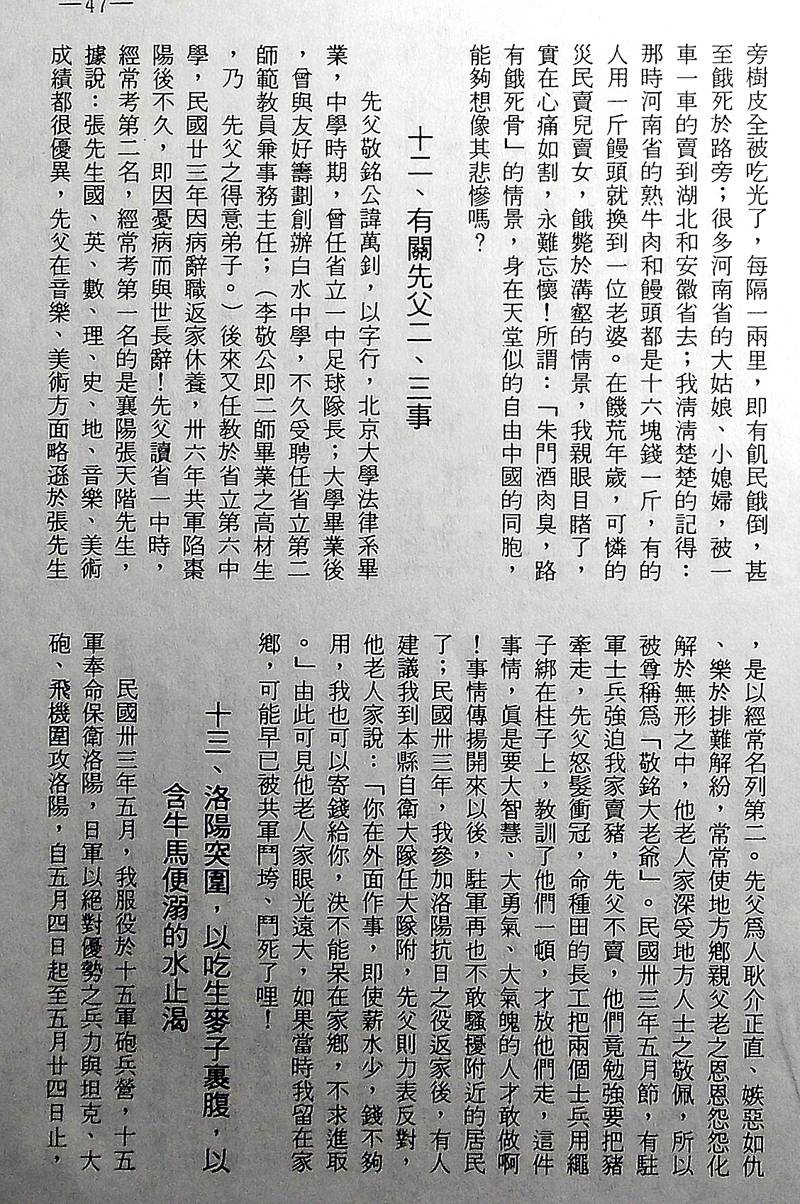 —47—
旁樹皮全被吃光了，每隔一兩里，即有飢民餓倒，甚
至餓死於路旁；很多河南省的大姑娘、小媳婦，被一
車一車的賣到湖北和安徽省去；我淸淸楚楚的記得：
那時河南省的熟牛肉和饅頭都是十六塊錢一斤，有的
人用一斤饅頭就換到一位老婆。在饑荒年歲，可憐的
災民賣兒賣女，餓斃於溝壑的情景，我親眼目睹了，
實在心痛如割，永難忘懷！所謂：「朱門酒肉臭，路
有餓死骨」的情景，身在天堂似的自由中國的同胞，
能夠想像其悲慘嗎？
十二、有關先父二、三事
先父敬銘公諱萬釗，以字行，北京大學法律系畢
業，中學時期，曾任省立一中足球隊長；大學畢業後
，曾與友好籌劃創辦白水中學，不久受聘任省立第二
師範教員兼事務主任；（李敬公即二師畢業之高材生
，乃　先父之得意弟子。）後來又任教於省立第六中
學，民國廿三年因病辭職返家休養，卅六年共軍陷棗
陽後不久，即因憂病而與世長辭！先父讀省一中時，
經常考第二名，經常考第一名的是襄陽張天階先生，
據說：張先生國、英、數、理、史、地、音樂、美術
成績都很優異，先父在音樂、美術方面略遜於張先生
，是以經常名列第二。先父爲人耿介正直、嫉惡如仇
、樂於排難解紛，常常使地方鄉親父老之恩恩怨怨化
解於無形之中，他老人家深受地方人士之敬佩，所以
被尊稱爲「敬銘大老爺」。民國卅三年五月節，有駐
軍士兵強迫我家賣豬，先父不賣，他們竟勉強要把豬
牽走，先父怒髮衝冠，命種田的長工把兩個士兵用繩
子綁在柱子上，教訓了他們一頓，才放他們走，這件
事情，眞是要大智慧、大勇氣、大氣魄的人才敢做啊
！事情傳揚開來以後，駐軍再也不敢騷擾附近的居民
了；民國卅三年，我參加洛陽抗日之役返家後，有人
建議我到本縣自衛大隊任大隊附，先父則力表反對，
他老人家說：「你在外面作事，即使薪水少，錢不夠
用，我也可以寄錢給你，決不能呆在家鄉，不求進取
。」由此可見他老人家眼光遠大，如果當時我留在家
鄉，可能早已被共軍鬥垮、鬥死了哩！
十三、洛陽突圍，以吃生麥子裹腹，以
含牛馬便溺的水止渴
民國卅三年五月，我服役於十五軍砲兵營，十五
軍奉命保衛洛陽，日軍以絕對優勢之兵力與坦克、大
砲、飛機圍攻洛陽，自五月四日起至五月廿四日止，